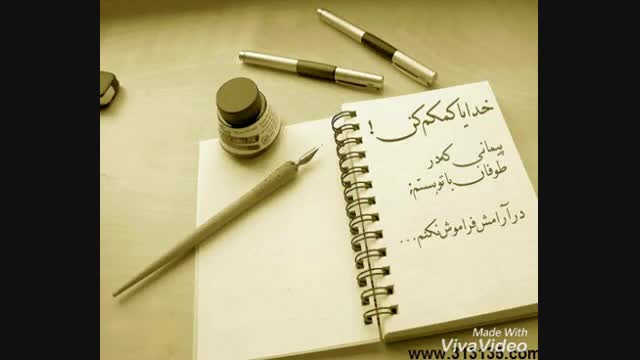 خدایا کمکم کن !
پیمانی که در
طوفان با تو بستم؛
در آرامش فراموش نکنم...
Made With
VivaVideo
www.313135.com